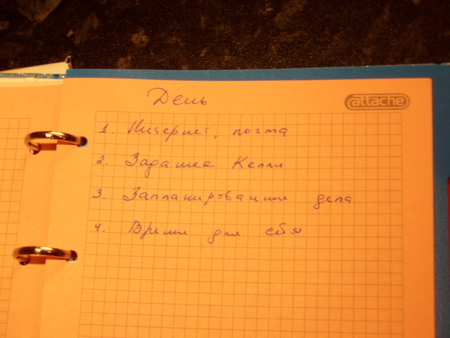 День
attache
1. Интернет, почта
2. Задание Келли
3. Запланированные дела
4. Время для себя